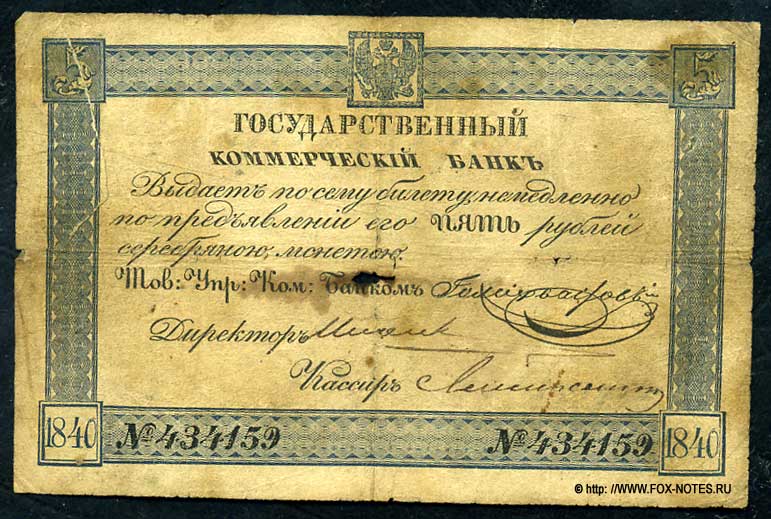 5 5
ГОСУДАРСТВЕННЫЙ
КОММЕРЧЕСКІЙ БАНКЪ
Выдаетъ по сему билету, немедленно
по предъявленіи его ПЯТЬ рублей
серебряною монетою.
Тов: Упр: Ком: Банкомъ
Директоръ
Кассиръ
1840 №434159 №434159 1840
© http: //WWW.FOX-NOTES.РУ